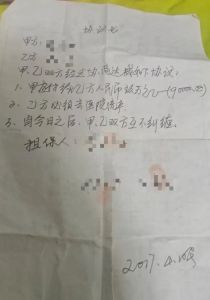 协议书
甲方：
乙方：
甲、乙双方经过协商达成如下协议：
1、甲方付给乙方人民币
2、乙方必须去医院流产
3、自今日之后，甲、乙双方互不纠缠。
担保人：
2017.